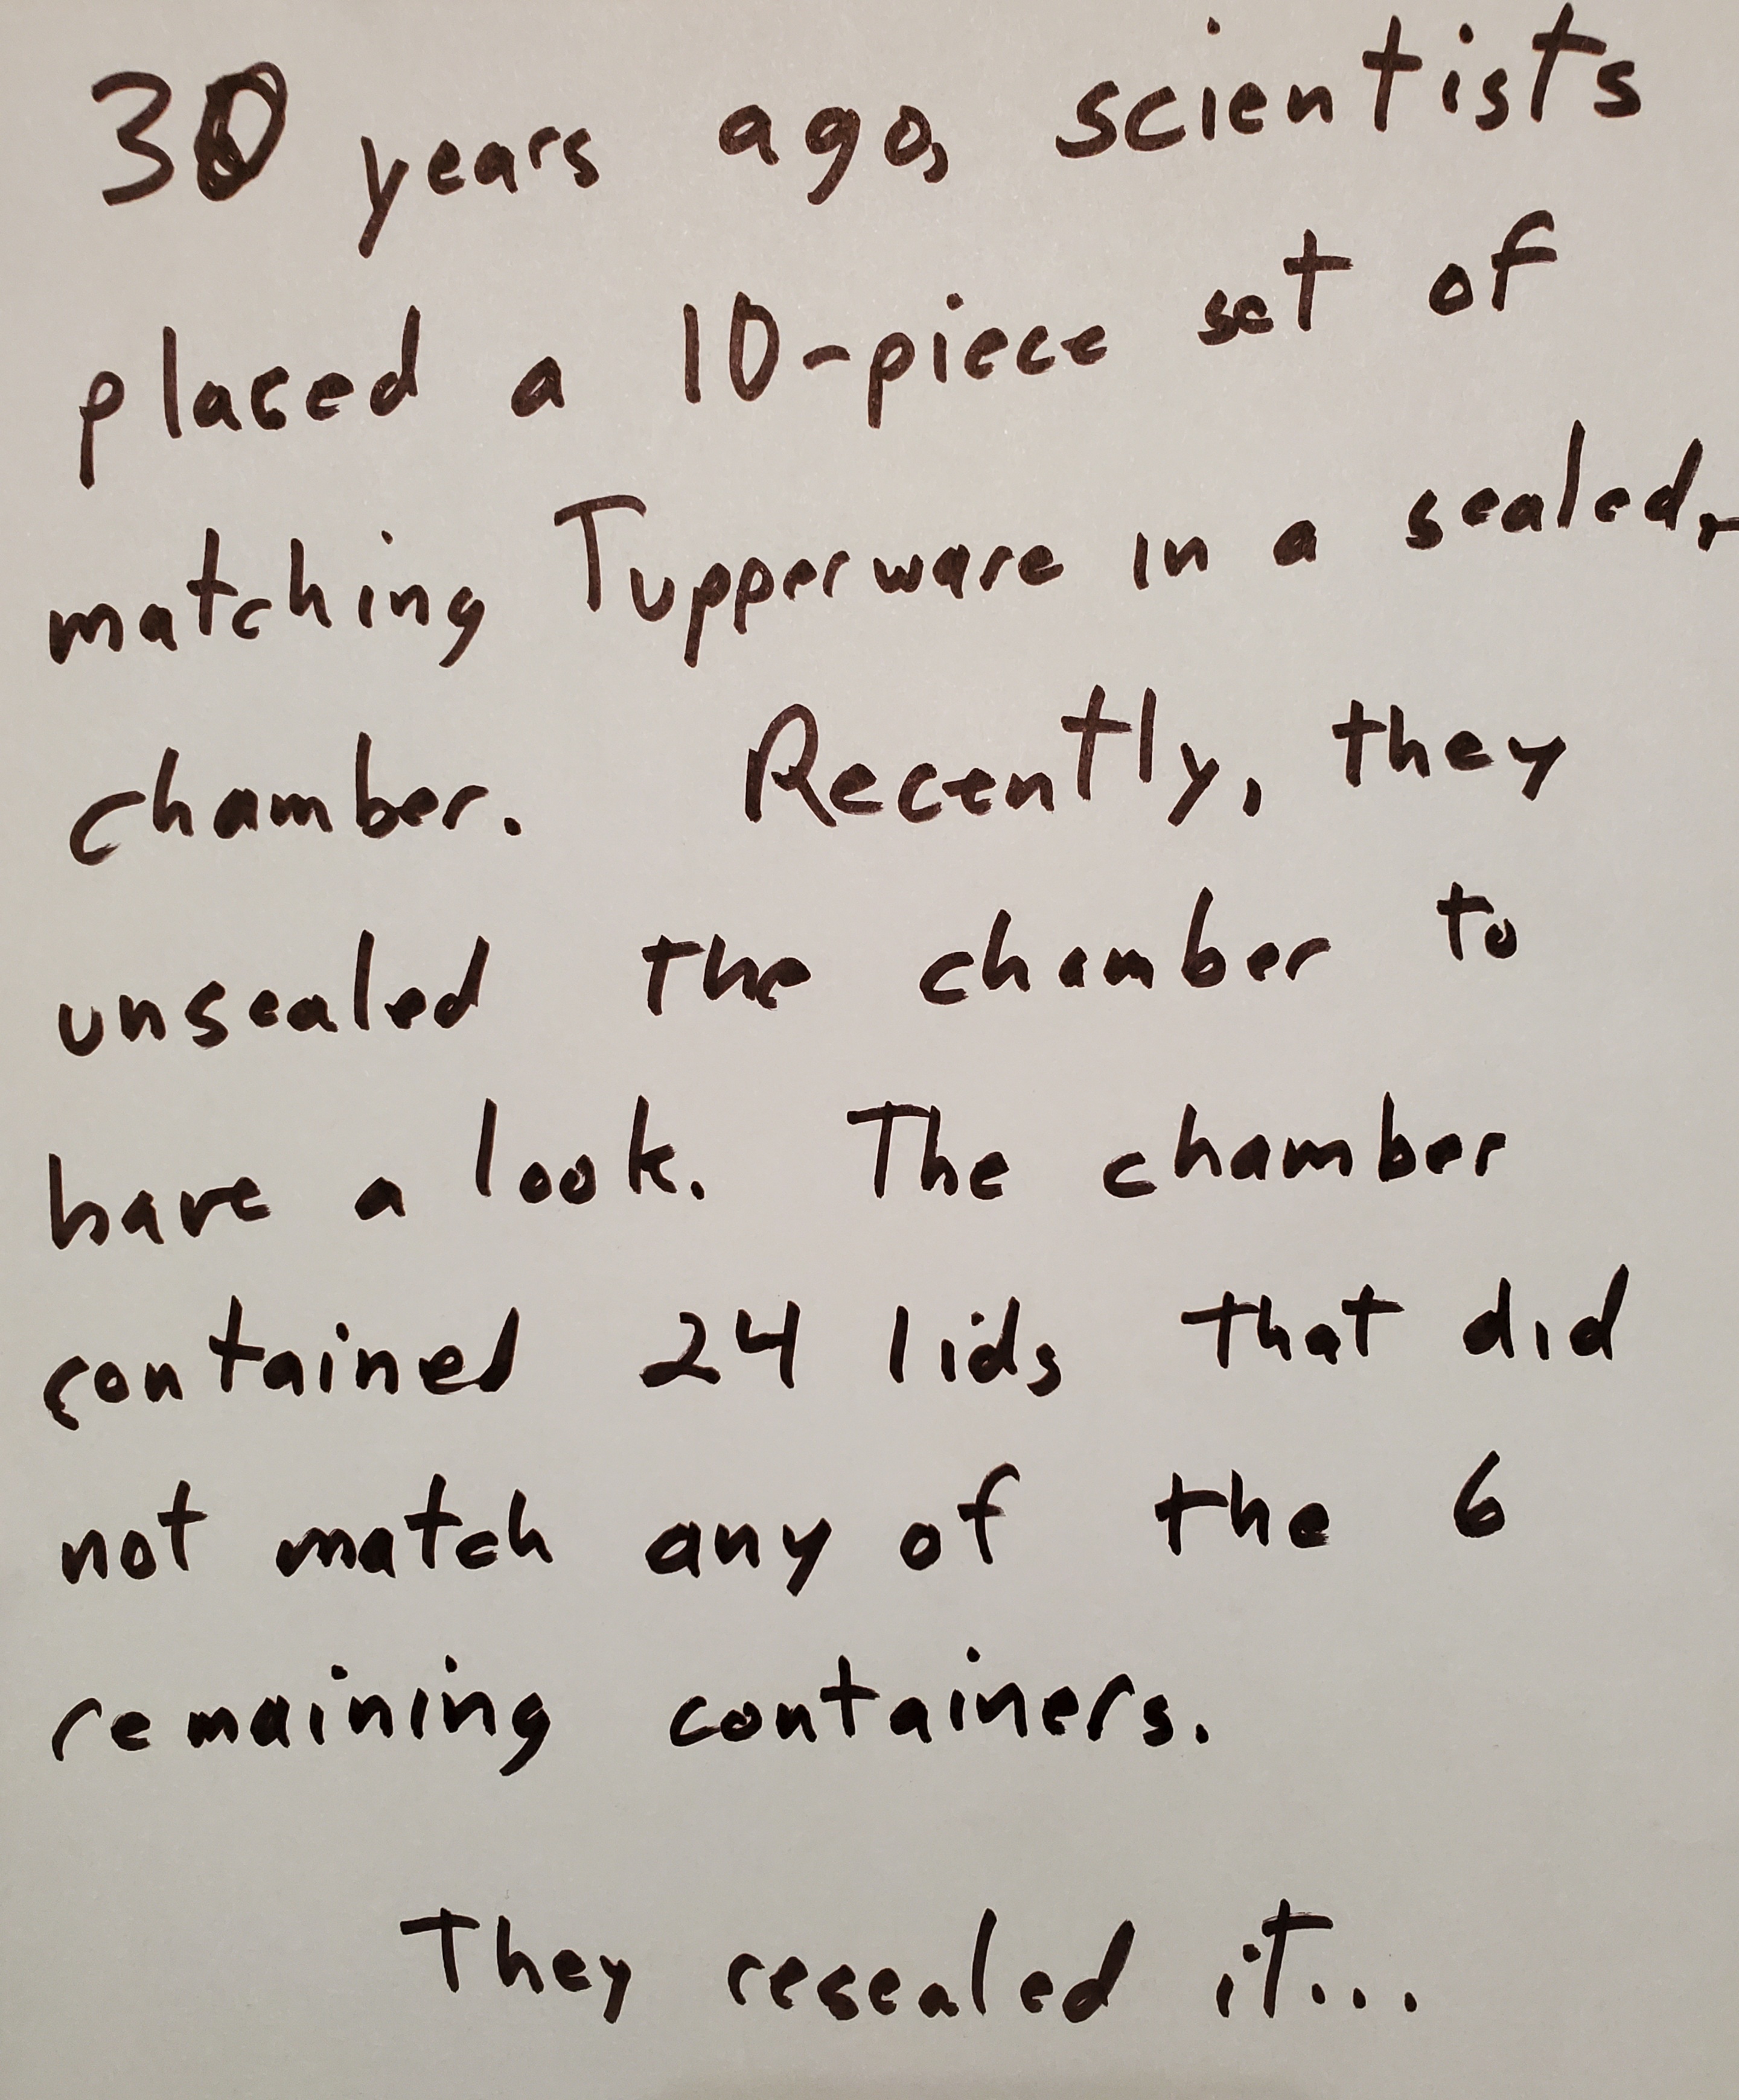 30 years ago, scientists
placed a 10-piece set of
matching Tupperware in a sealed,
chamber. Recently, they
unsealed the chamber to
have a look. The chamber
contained 24 lids that did
not match any of the 6
remaining containers.
They resealed it...